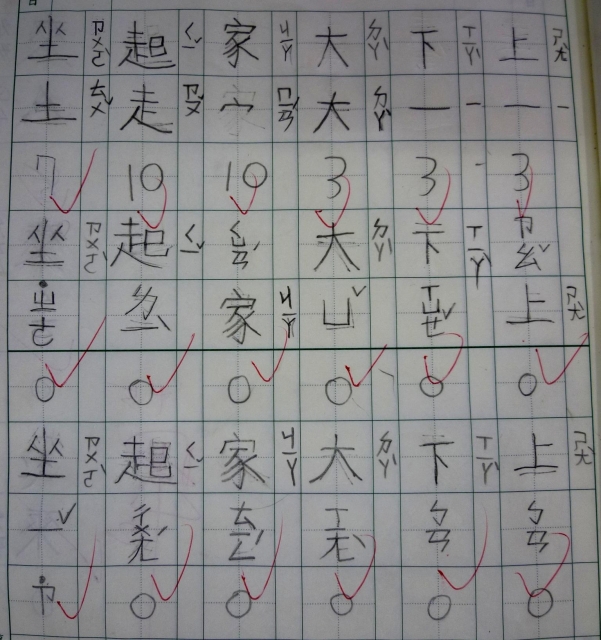 坐 ㄗㄨㄛˋ 起 ㄑㄧˇ 家 ㄐㄧㄚ 大 ㄉㄚˋ 下 ㄒㄧㄚˋ 上 ㄕㄤˋ
土 ㄊㄨˇ 走 ㄗㄡˇ 宀 ㄇㄧㄢˊ 大 ㄉㄚˋ 一 ㄧ 一 ㄧ
7 10 10 3 3 3
坐 ㄗㄨㄛˋ 起 ㄑㄧˇ ㄑㄩㄢˊ 大 ㄉㄚˋ 下 ㄒㄧㄚˋ ㄗㄠˇ
˙ㄓㄜ ㄌㄞˊ 家 ㄐㄧㄚ ㄩˇ ㄒㄩㄝˇ 上 ㄕㄤˋ
〇 〇 〇 〇 〇 〇
坐 ㄗㄨㄛˋ 起 ㄑㄧˇ 家 ㄐㄧㄚ 大 ㄉㄚˋ 下 ㄒㄧㄚˋ 上 ㄕㄤˋ
ㄧˇ ㄊㄧㄥˊ ㄅㄢ ㄅㄢ
˙ㄗ 〇 〇 〇 〇 〇